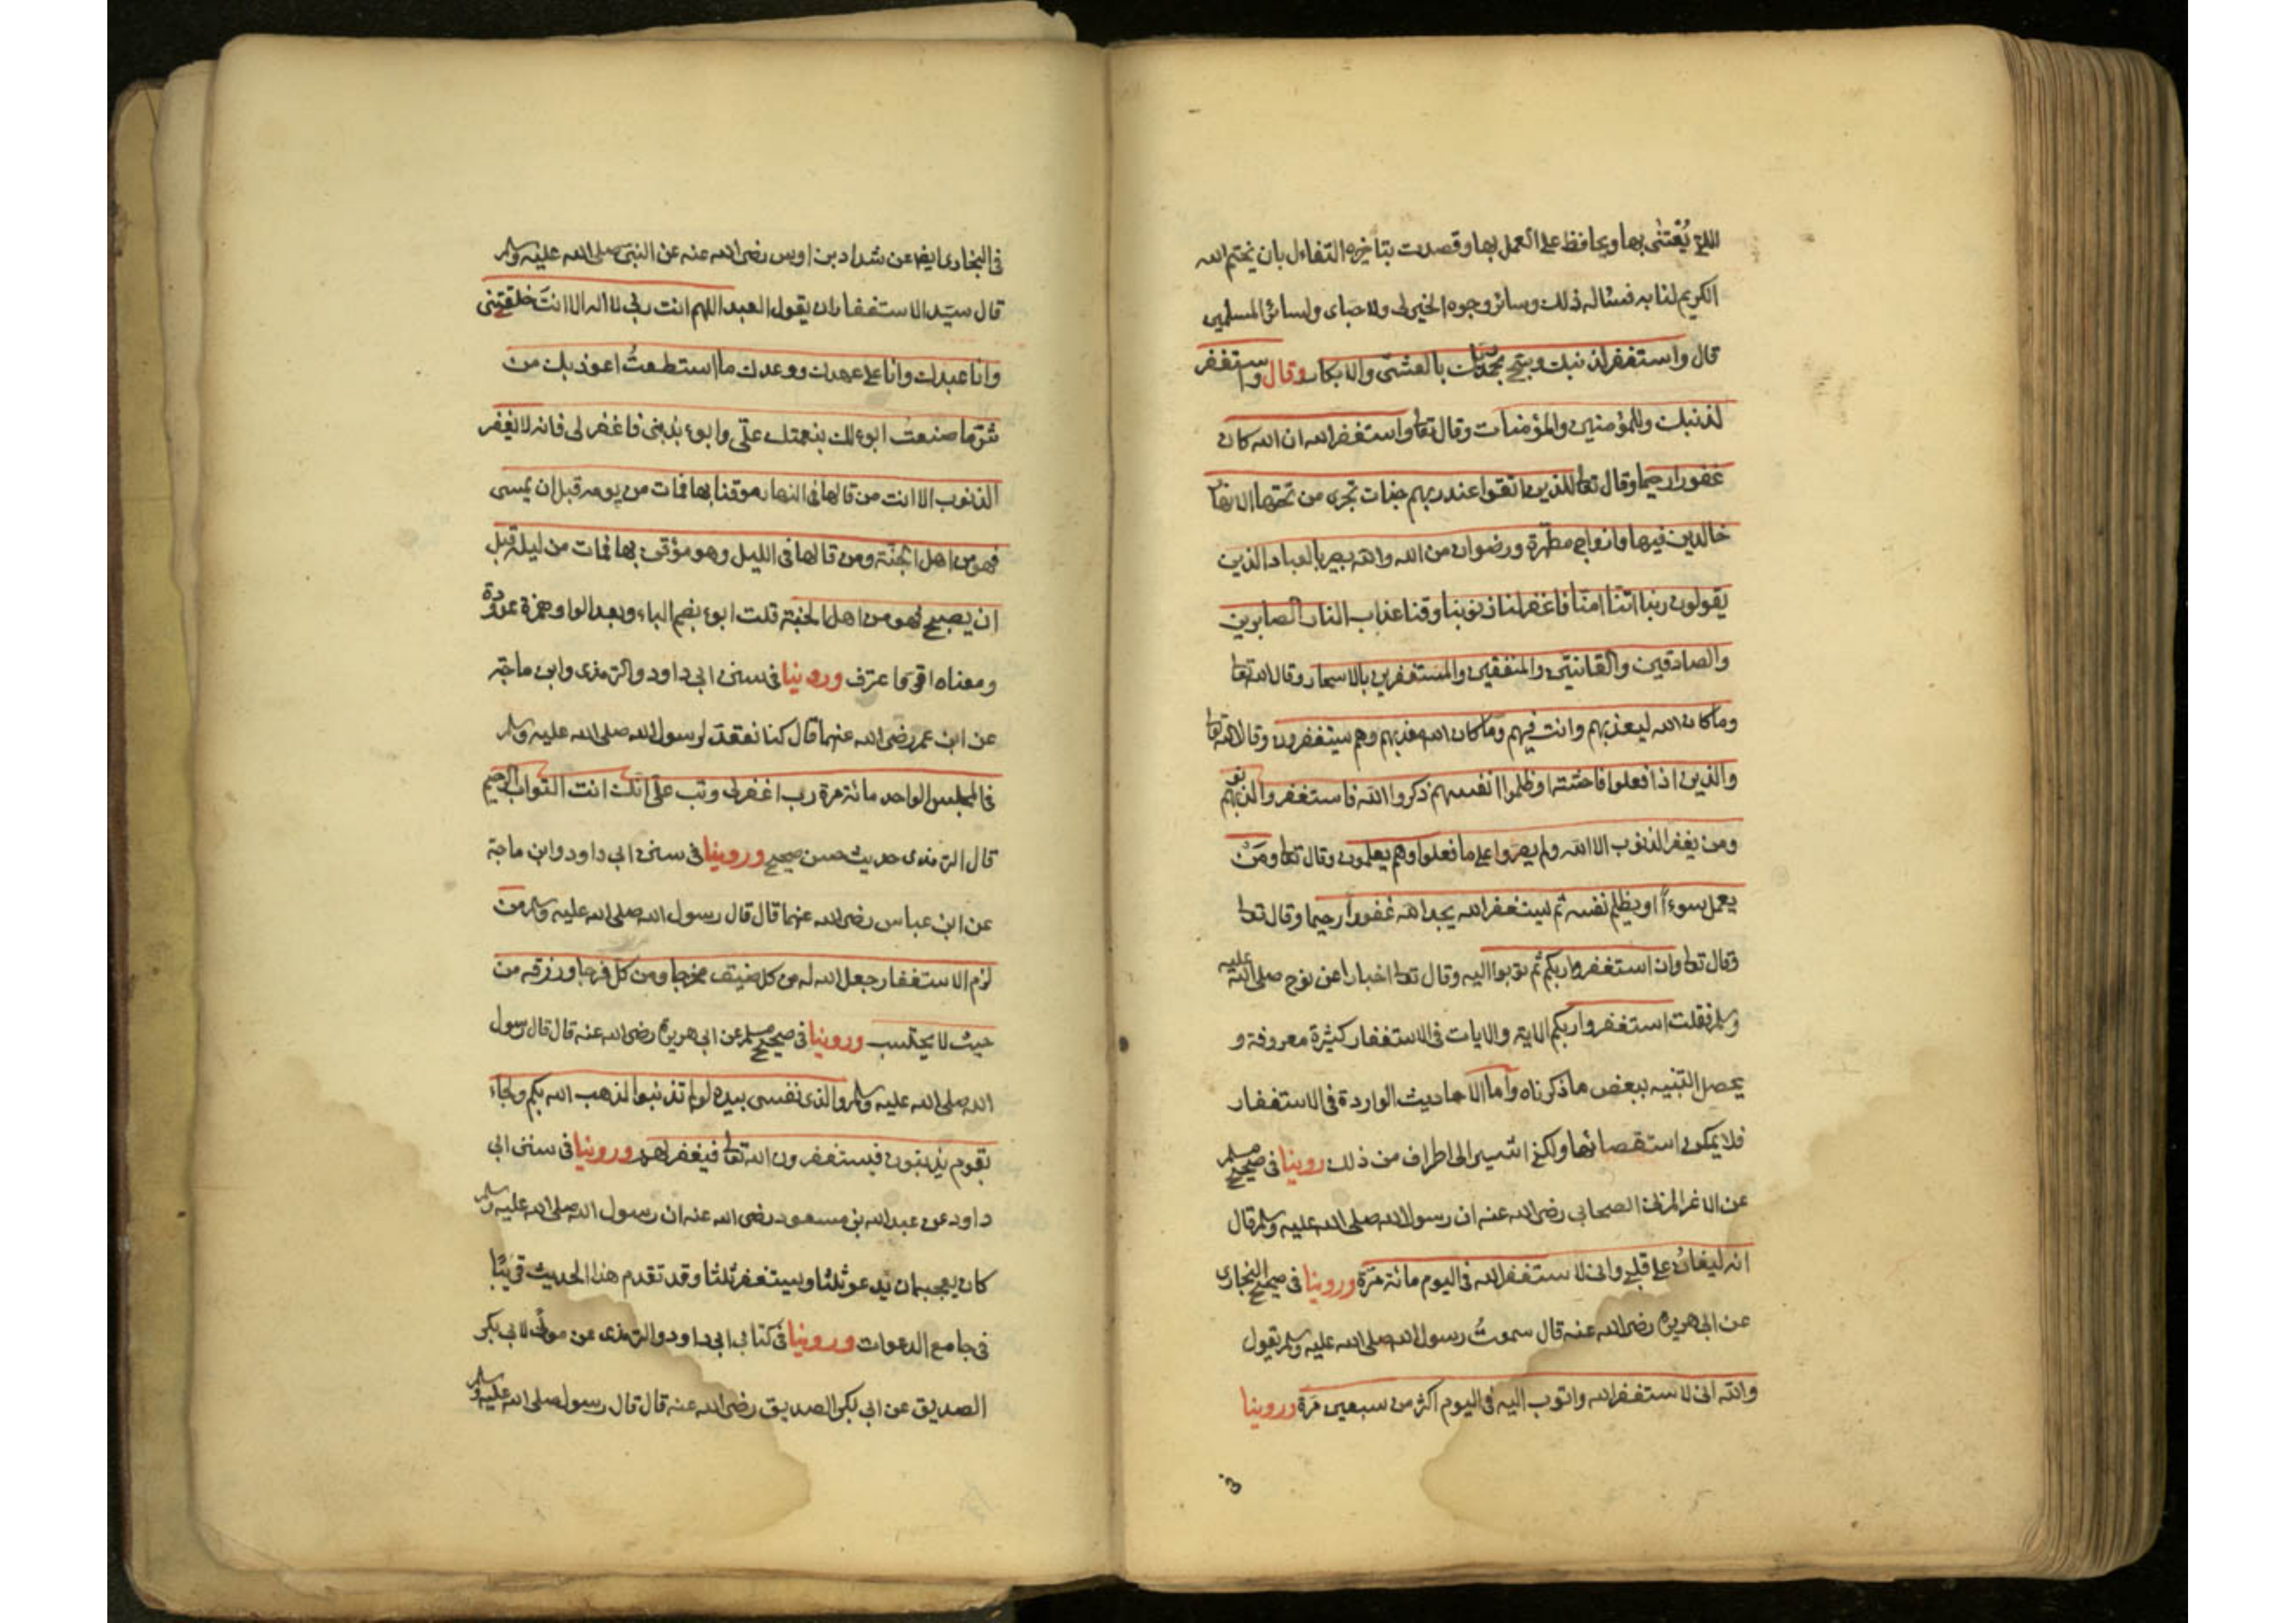 التي يُعتنى بها ويحافظ على العمل بها وقصدت بتاخيره التفاءل بان يختم الله
الكريم لنا به فنساله ذلك وسائر وجوه الخير لى ولاحباى ولسائر المسلمين
قال واستغفر لذنبك وسبح بحمد ربك بالعشى والابكار وقال واستغفر
لذنبك وللمؤمنين والمؤمنات وقال تعا واستغفر الله ان الله كان
غفورا رحيما وقال تعا للذين اتقوا عند ربهم جنات تجرى من تحتها الانهار
خالدين فيها وازواج مطهرة ورضوان من الله والله بصير بالعباد الذين
يقولون ربنا اننا امنا فاغفر لنا ذنوبنا وقنا عذاب النار الصابرين
والصادقين والقانتين والمنفقين والمستغفرين بالاسحار وقال الله تعا
وما كان الله ليعذبهم وانت فيهم وما كان الله معذبهم وهم يستغفرون وقال الله تعا
والذين اذا فعلوا فاحشة او ظلموا انفسهم ذكروا الله فاستغفروا لذنوبهم
ومن يغفر الذنوب الا الله ولم يصروا على ما فعلوا وهم يعلمون وقال تعا ومَنْ
يعمل سوءاً او يظلم نفسه ثم يستغفر الله يجد الله غفورا رحيما وقال تعا
وقال تعا وان استغفروا ربكم ثم توبوا اليه وقال تعا اخبارا عن نوح صلى الله عليه
وسلم فقلت استغفروا ربكم الاية والايات فى الاستغفار كثيرة معروفة و
يحصل التنبيه ببعض ما ذكرناه واما الاحاديث الواردة فى الاستغفار
فلا يمكن استقصائها ولكنى اشير الى اطراف من ذلك روينا فى صحيح مسلم
عن الاغر المزنى الصحابى رضى الله عنه ان رسول الله صلى الله عليه وسلم قال
انه ليغان على قلبى وانى لاستغفر الله فى اليوم مائة مرّة وروينا فى صحيح البخارى
عن ابى هريرة رضى الله عنه قال سمعتُ رسول الله صلى الله عليه وسلم يقول
والله انى لاستغفر الله واتوب اليه فى اليوم اكثر من سبعين مَرة وروينا
فى
فى البخارى ايضا عن شداد بن اوس رضى الله عنه عن النبى صلى الله عليه وسلم
قال سيّد الاستغفار ان يقول العبد اللهم انت ربى لا اله الا انتَ خلقتنى
وانا عبدك وانا على عهدك ووعدك ما استطعتُ اعوذ بك من
شرّ ما صنعت ابوء لك بنعمتك علىّ وابوء بذنبى فاغفر لى فانه لا يغفر
الذنوب الا انت من قالها فى النهار موقنا بها فمات من يومه قبل ان يمسى
فهو من اهل الجنّة ومن قالها فى الليل وهو مؤقن بها فمات من ليله قبل
ان يصبح فهو من اهل الجنة قلت ابوء بضم الباء وبعد الواو همزة ممدودة
ومعناه اقرّ واعترف وروينا فى سنن ابى داود والترمذى وابن ماجة
عن ابن عمر رضى الله عنهما قال كنا نعُد لرسول الله صلى الله عليه وسلم
فى المجلس الواحد مائة مرة رب اغفر لى وتب علىّ انك انت التواب الرحيم
قال الترمذى حديث حسن صحيح وروينا فى سنن ابى داود وابن ماجة
عن ابن عباس رضى الله عنهما قال قال رسول الله صلى الله عليه وسلم من
لزم الاستغفار جعل الله له من كل ضيف مخرجا ومن كل فرجا ورزقه من
حيث لا يحتسب وروينا فى صحيح مسلم عن ابى هريرة رضى الله عنه قال قال رسول
الله صلى الله عليه وسلم والذى نفسى بيده لو لم تذنبوا لذهب الله بكم ولجاء
بقوم يذنبون فيستغفرون الله تعا فيغفر لهم وروينا فى سنن ابى
داود عن عبد الله بن مسعود رضى الله عنه ان رسول الله صلى الله عليه وسلم
كان يعجبه ان يدعو ثلثا ويستغفر ثلثا وقد تقدم هذا الحديث قريبًا
فى جامع الدعوات وروينا فى كتابى ابى داود والترمذى عن مولًى لابى بكر
الصديق عن ابى بكر الصديق رضى الله عنه قال قال رسول صلى الله عليه وسلم